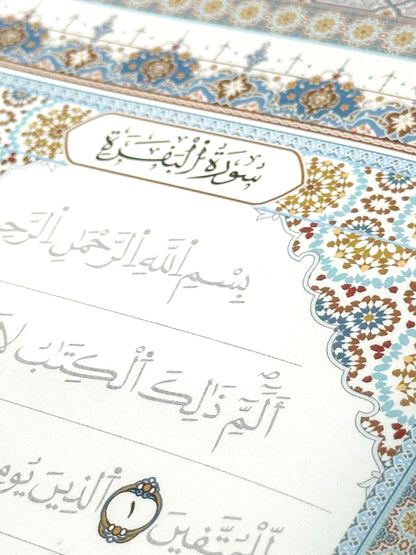 سُورَةُ الْبَقَرَةِ
بِسْمِ اللَّهِ الرَّحْمَٰنِ
الٓمٓ ذَٰلِكَ الْكِتَابُ لَا
لِّلْمُتَّقِينَ ١ الَّذِينَ